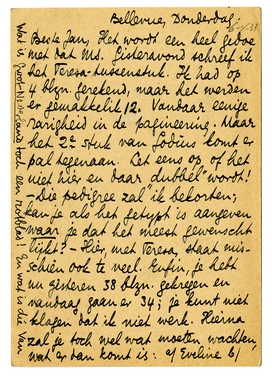 Bellevue, Donderdag.
Beste Jan, Het wordt een heel gedoe
met dat Ms. Gisteravond schreef ik
het Teresa-tussenstuk. Ik had op
4 blzn. gerekend, maar het werden
er gemakkelijk 12. Vandaar eenige
rarigheid in de pagineering. Maar
het 2e stuk van Lodius komt er
pal tegenaan. Let eens op of het
niet hier en daar "dubbel" wordt!
- Die pedigree zal ik bekorten;
kan je als het getypt is aangeven
waar je dat het meest gewenscht
lijkt? - Hier, met Teresa, staat mis-
schien ook te veel. Enfin, je hebt
nu gisteren 38 blzn. gekregen en
vandaag gaan er 34; je kunt niet
klagen dat ik niet werk. Hierna
zal je toch wel wat moeten wachten,
want er dan komt is: a) Eveline b)
Wat is Groot-Nederland toch een rotblad! En wat is die Van